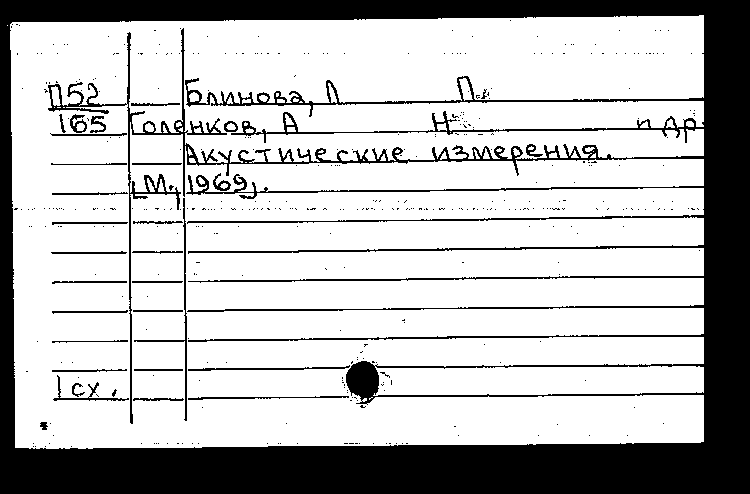 П52 Блинова, Л П.
165 Голенков, А Н и др.
Акустические измерения.
[М., 1969].
1 сх.